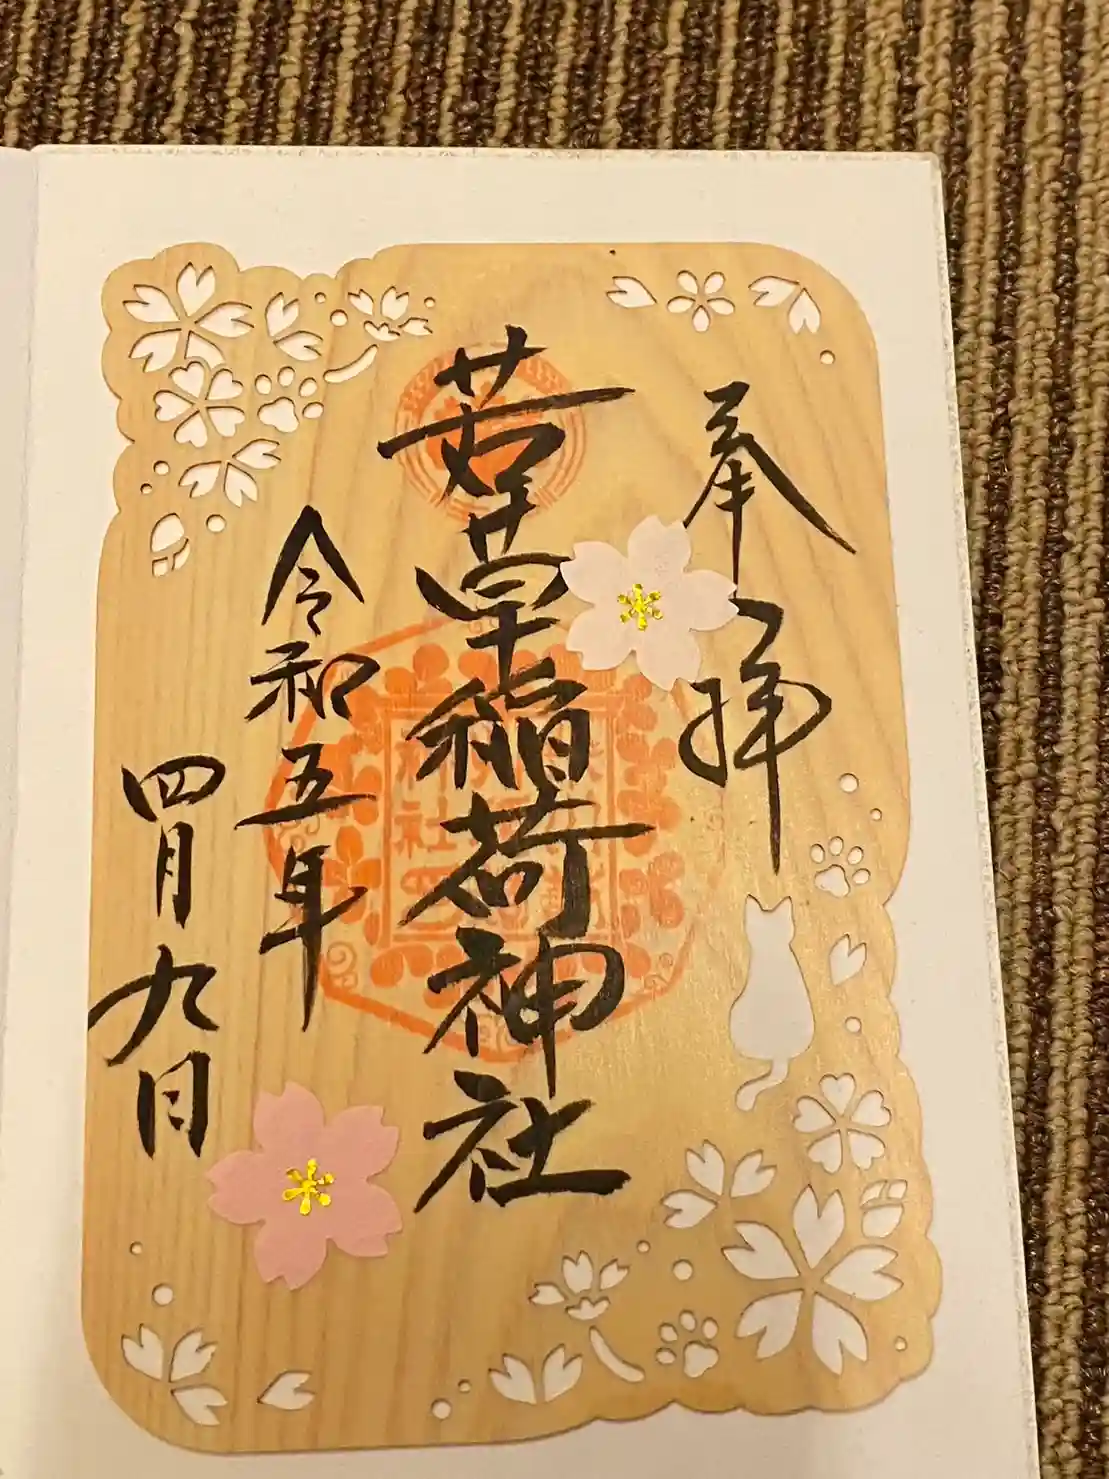 奉拝
若草稲荷神社
令和五年
四月九日